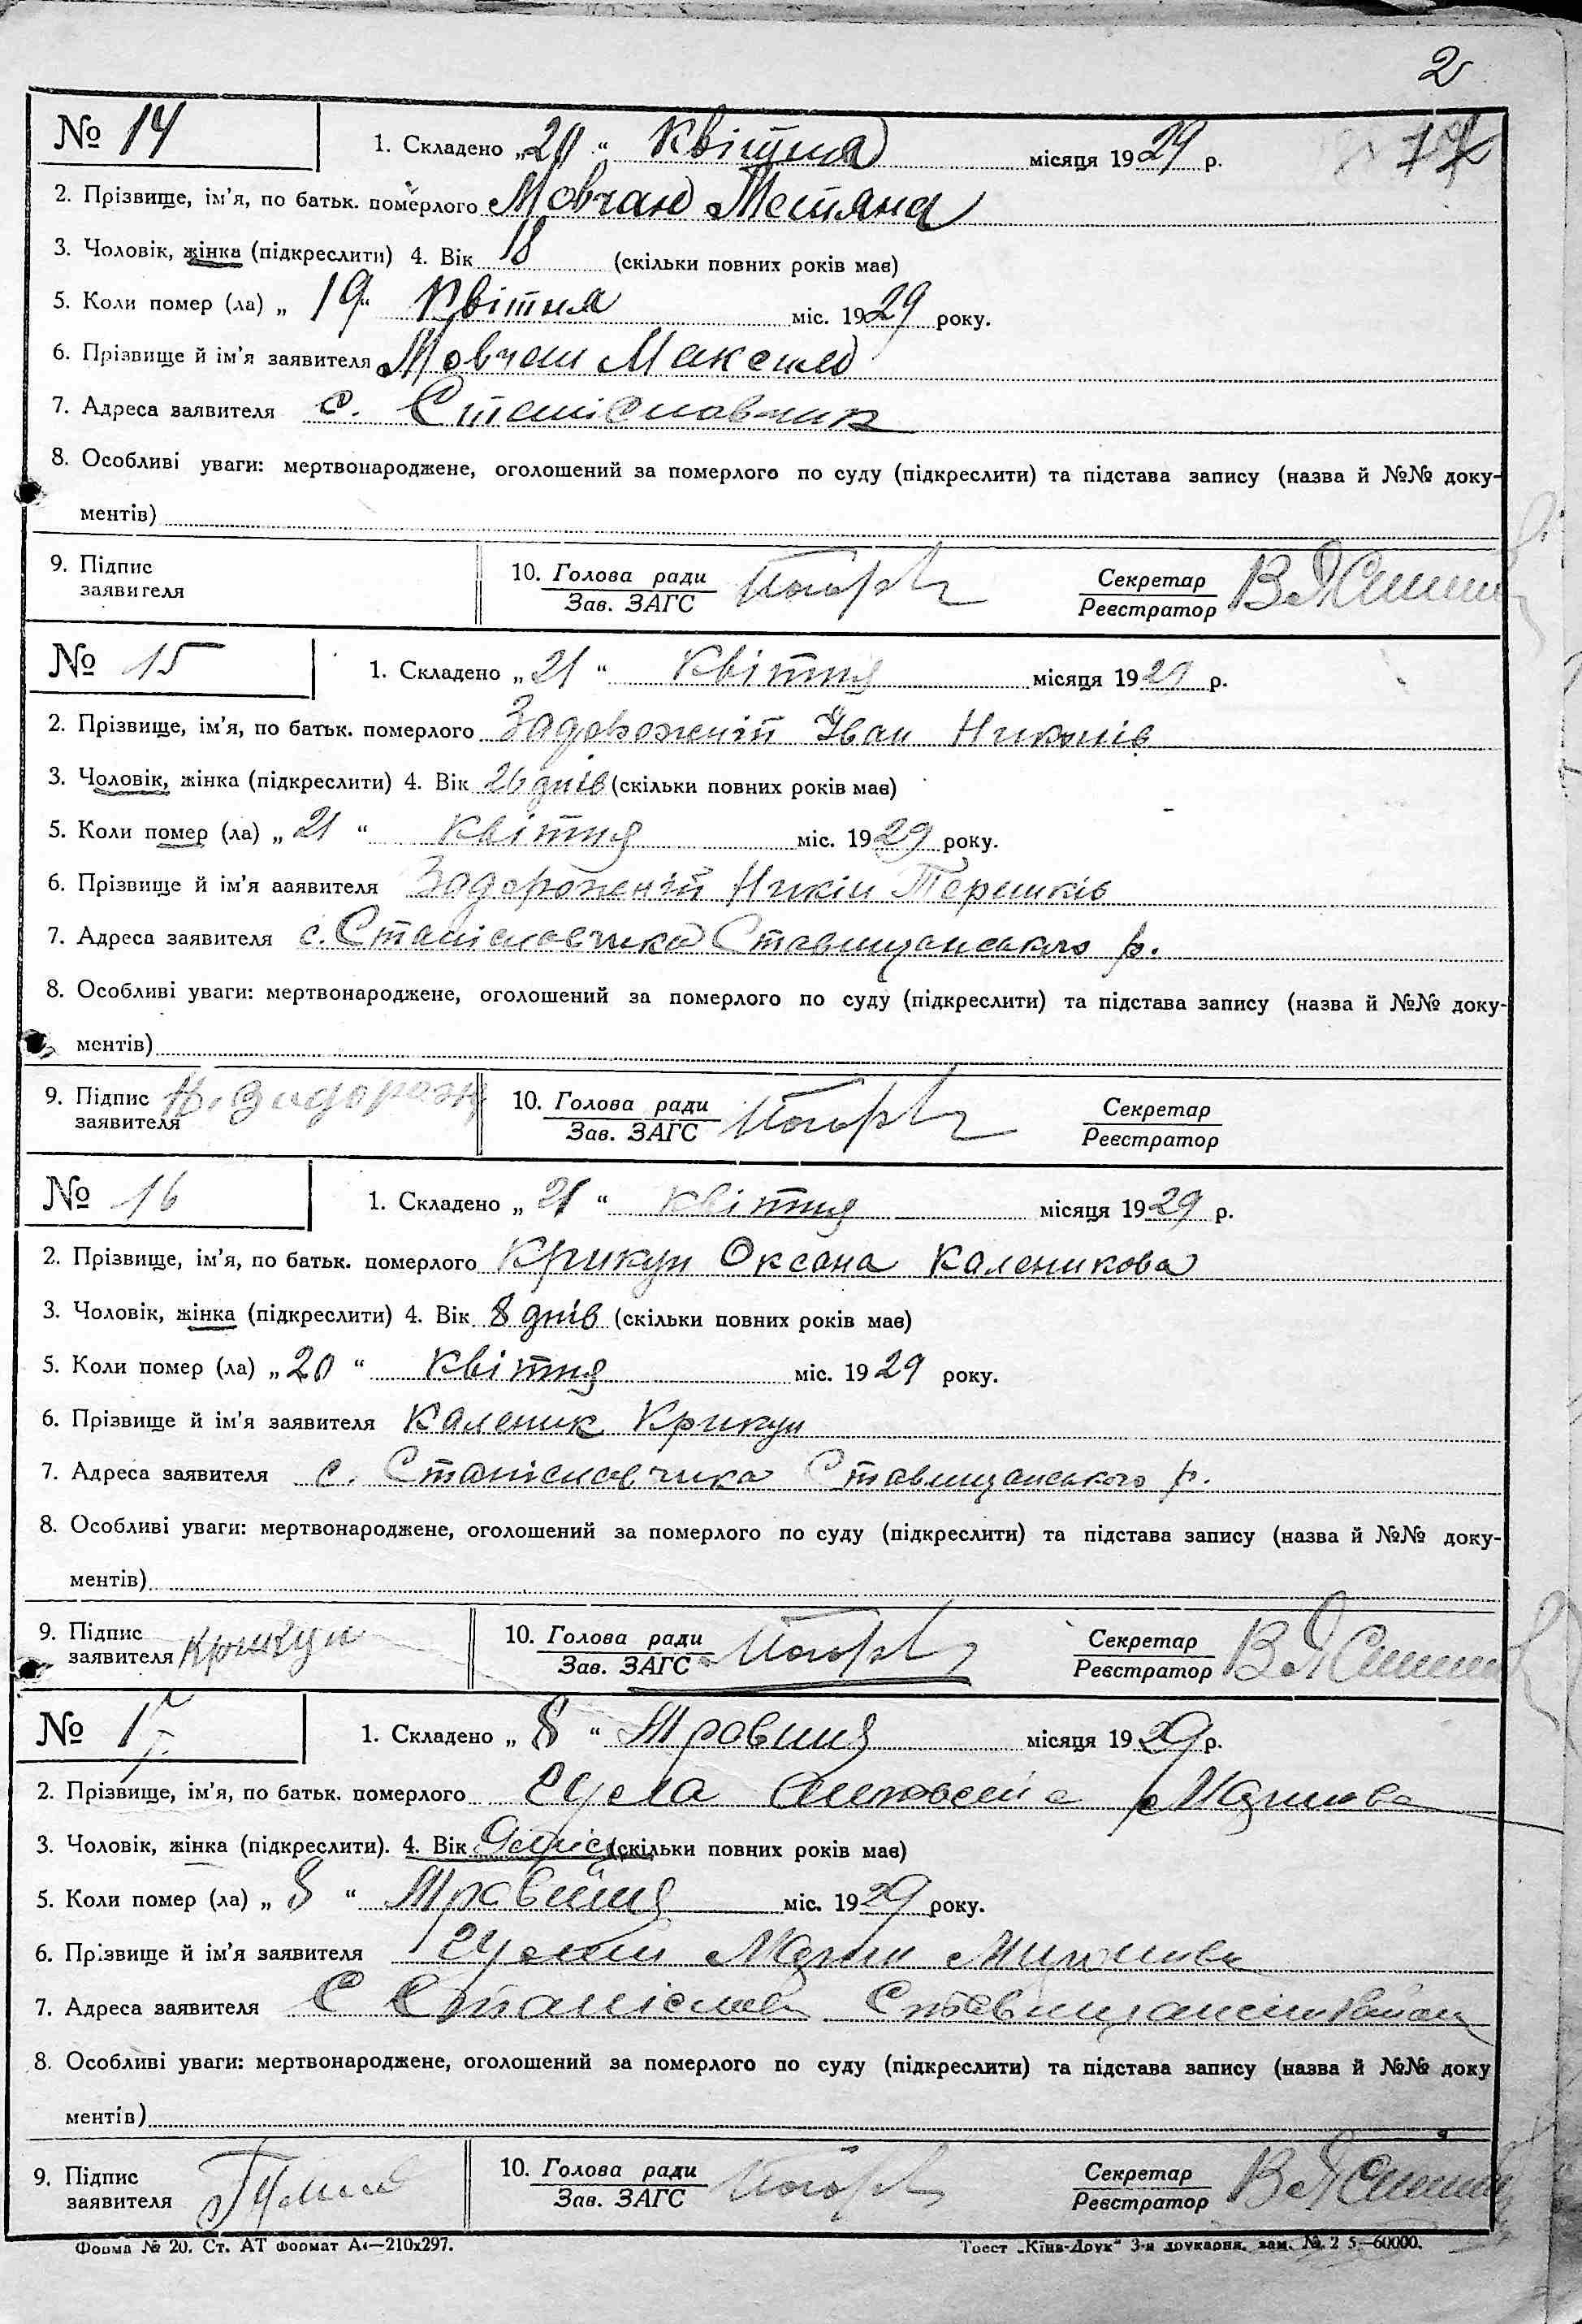 2
№ 14 1. Складено „20“ Квітня місяця 1929 р. 17
2. Прізвище, ім'я, по батьк. померлого Мовчан Тетяна
3. Чоловік, жінка (підкреслити) 4. Вік 18 (скільки повних років має)
5. Коли помер (ла) „19“ Квітня міс. 1929 року.
6. Прізвище й ім'я заявителя Мовчан Максим
7. Адреса заявителя с. Станіславчик
8. Особливі уваги: мертвонароджене, оголошений за померлого по суду (підкреслити) та підстава запису (назва й №№ доку-
ментів)
9. Підпис заявителя 10. Голова ради Зав. ЗАГС Секретар Реєстратор
№ 15 1. Складено „21“ Квітня місяця 1929 р.
2. Прізвище, ім'я, по батьк. померлого Задорожній Іван Никонів
3. Чоловік, жінка (підкреслити) 4. Вік 26 днів (скільки повних років має)
5. Коли помер (ла) „21“ Квітня міс. 1929 року.
6. Прізвище й ім'я заявителя Задорожній Никін Терешків
7. Адреса заявителя с. Станіславчика Ставищанського р.
8. Особливі уваги: мертвонароджене, оголошений за померлого по суду (підкреслити) та підстава запису (назва й №№ доку-
ментів)
9. Підпис заявителя Н. Задорожн 10. Голова ради Зав. ЗАГС Секретар Реєстратор
№ 16 1. Складено „21“ Квітня місяця 1929 р.
2. Прізвище, ім'я, по батьк. померлого Крикун Оксана Каленикова
3. Чоловік, жінка (підкреслити) 4. Вік 8 днів (скільки повних років має)
5. Коли помер (ла) „20“ Квітня міс. 1929 року.
6. Прізвище й ім'я заявителя Каленик Крикун
7. Адреса заявителя с. Станіславчика Ставищанського р.
8. Особливі уваги: мертвонароджене, оголошений за померлого по суду (підкреслити) та підстава запису (назва й №№ доку-
ментів)
9. Підпис заявителя Крикун 10. Голова ради Зав. ЗАГС Секретар Реєстратор
№ 17 1. Складено „8“ Травня місяця 1929 р.
2. Прізвище, ім'я, по батьк. померлого
3. Чоловік, жінка (підкреслити). 4. Вік (скільки повних років має)
5. Коли помер (ла) „8“ Травня міс. 1929 року.
6. Прізвище й ім'я заявителя
7. Адреса заявителя С
8. Особливі уваги: мертвонароджене, оголошений за померлого по суду (підкреслити) та підстава запису (назва й №№ доку
ментів)
9. Підпис заявителя 10. Голова ради Зав. ЗАГС Секретар Реєстратор
Форма № 20. Ст. АТ формат А4—210х297. Трест „Київ-Друк“ 3-я друкарня. зам. № 2 5—60000.